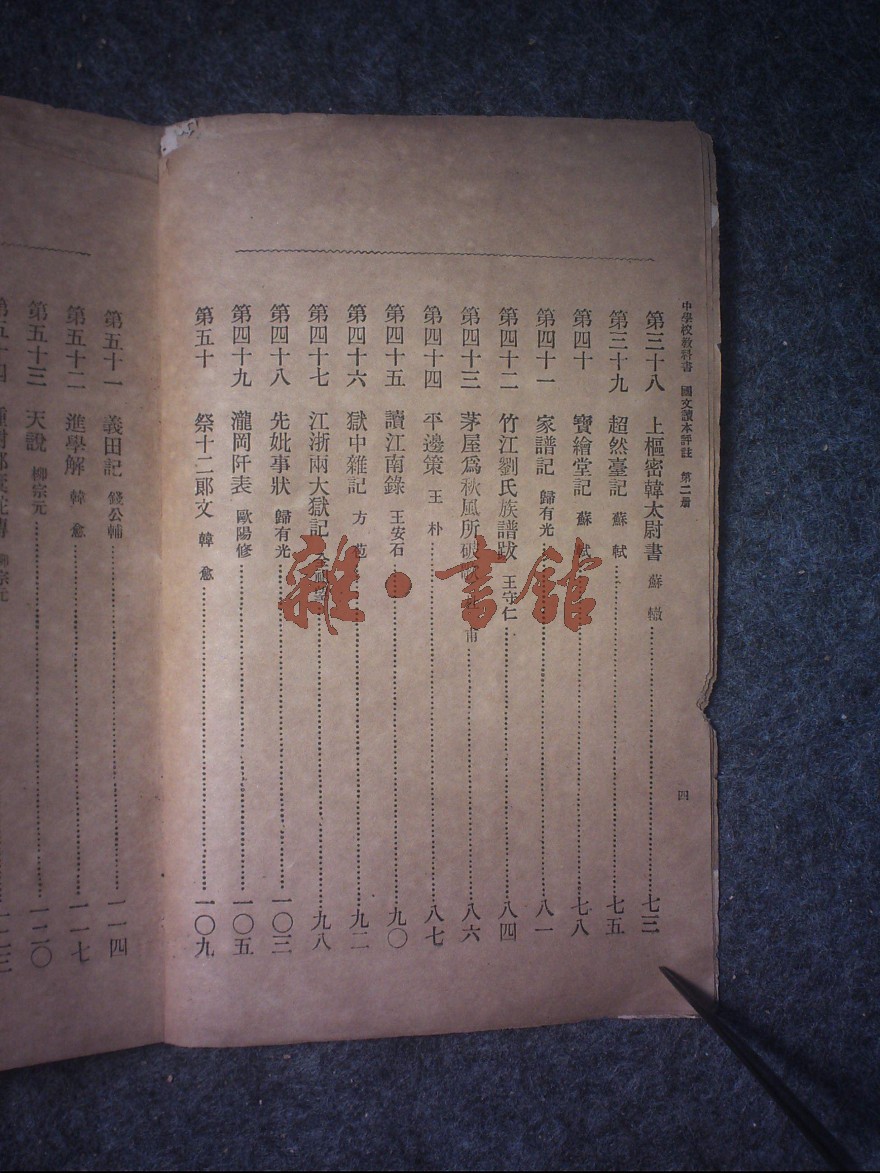 中學校教科書 國文讀本評註 第二册
四
第三十八 上樞密韓太尉書 蘇轍 七三
第三十九 超然臺記 蘇軾 七五
第四十 寶繪堂記 蘇軾 七八
第四十一 家譜記 歸有光 八一
第四十二 竹江劉氏族譜跋 王守仁 八四
第四十三 茅屋爲秋風所破 甫 八六
第四十四 平邊策 王朴 八七
第四十五 讀江南錄 王安石 九〇
第四十六 獄中雜記 方苞 九二
第四十七 江浙兩大獄記 全祖望 九八
第四十八 先妣事狀 歸有光 一〇三
第四十九 瀧岡阡表 歐陽修 一〇五
第五十 祭十二郎文 韓愈 一〇九
第五十一 義田記 錢公輔 一一四
第五十二 進學解 韓愈 一一七
第五十三 天說 柳宗元 一二〇
第五十四 柳宗元
雜·書館